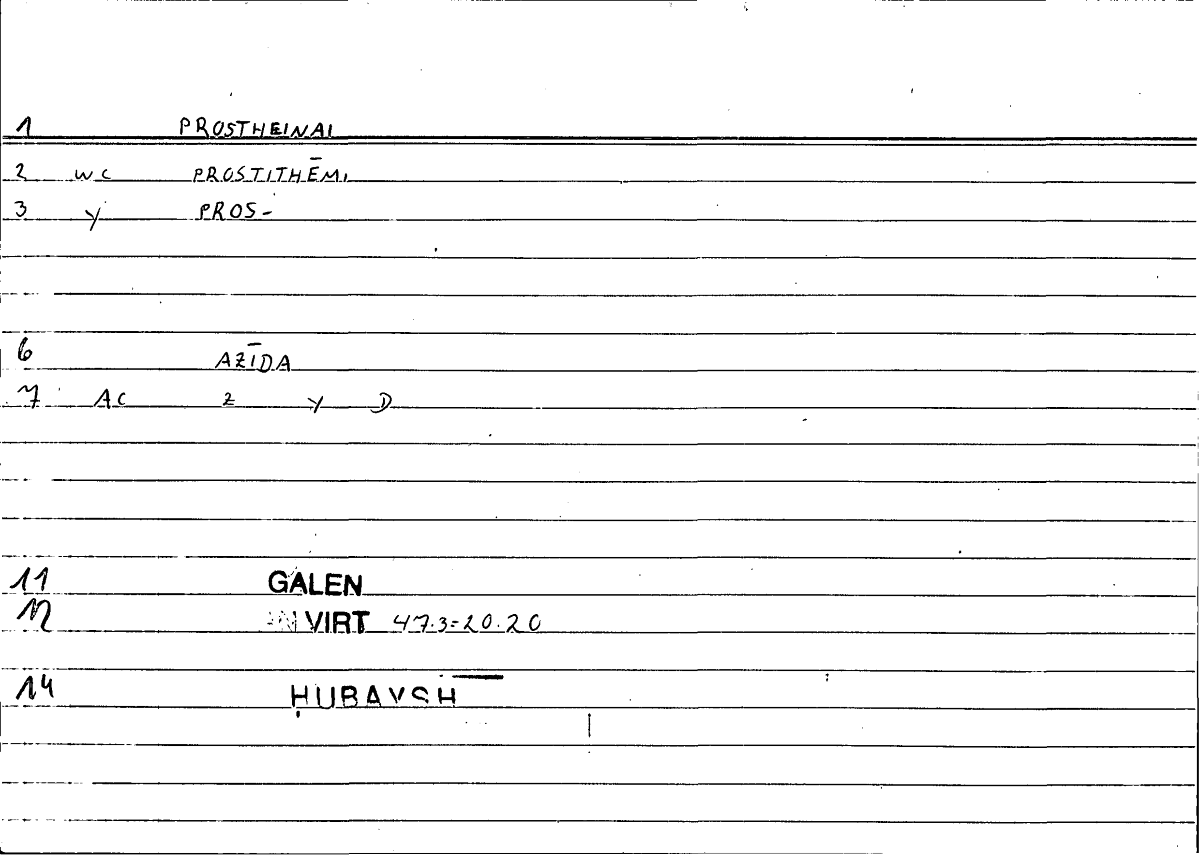 1 PROSTHEINAI
2 WC PROSTITHĒMI
3 Y PROS-
6 AZĪDA
7 AC Z Y D
11 GALEN
12 AN VIRT 47.3=20.20
14 ḤUBAYSH